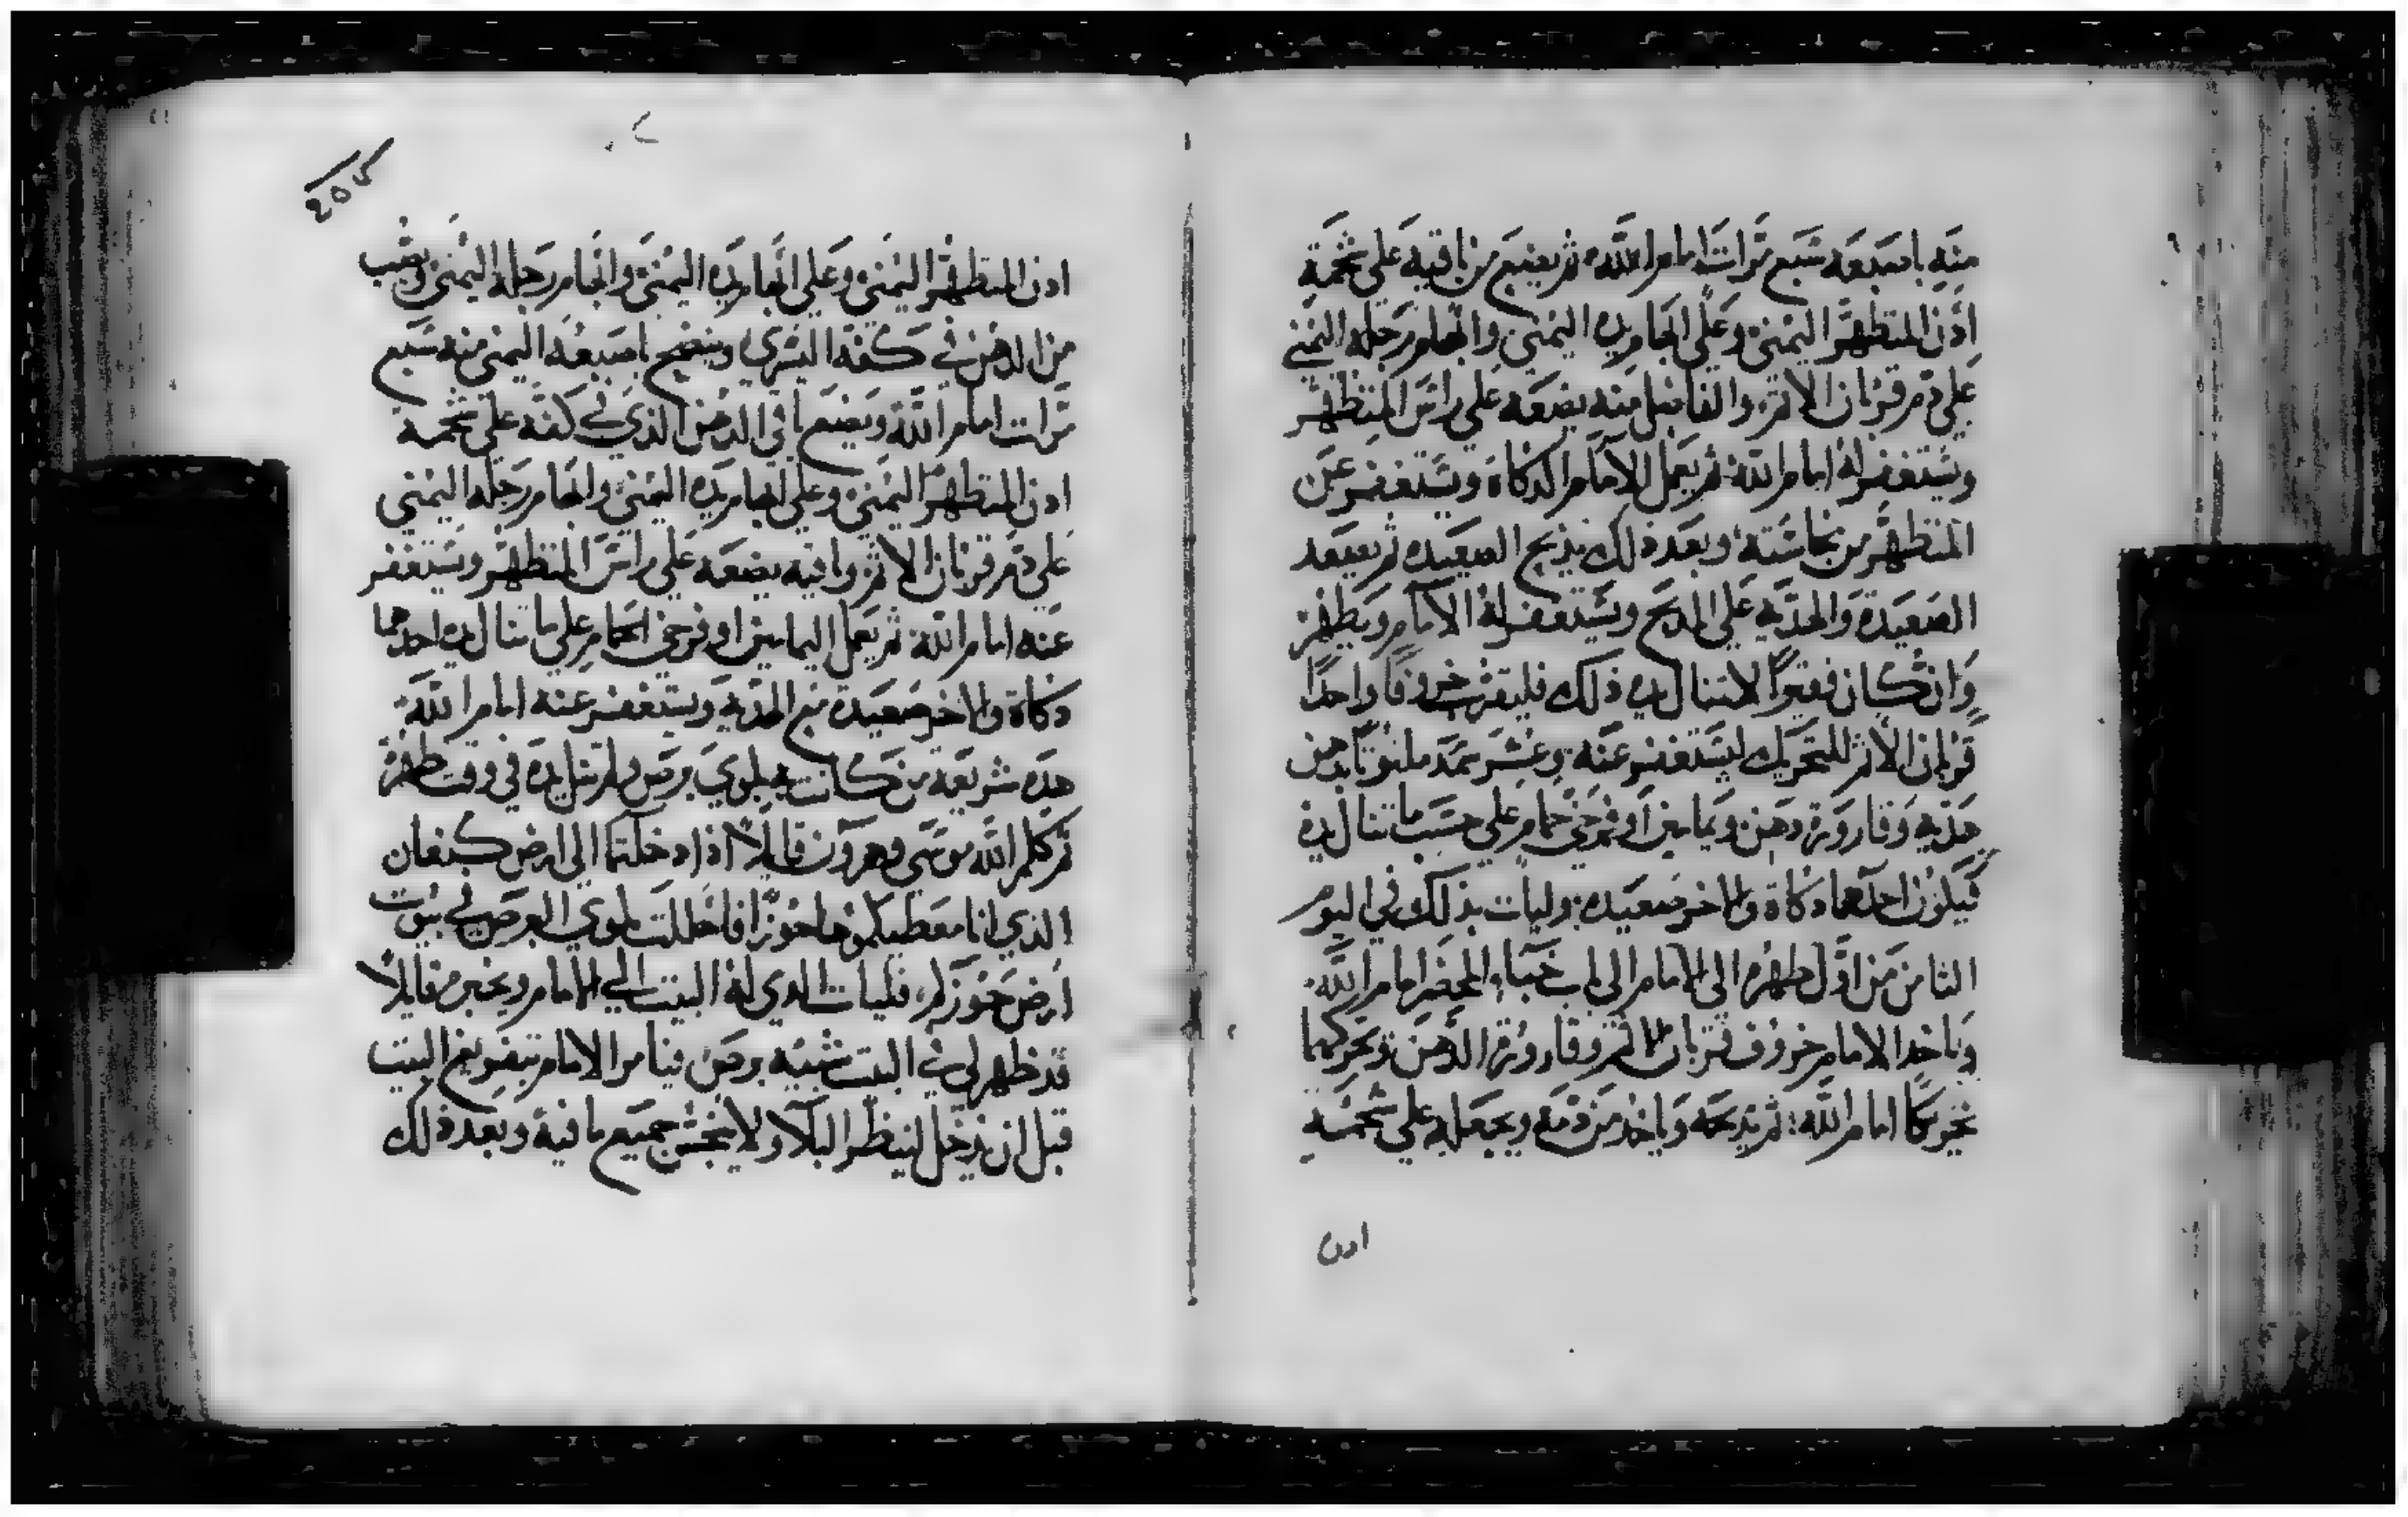 منه باصبعه سبع مرات امام الله ثم يضع من باقيه على شحمة
اذن المتطهر اليمنى وعلى ابهام يده اليمنى وابهام رجله اليمنى
على دم قربان الاثم والفاضل منه يضعه على راس المتطهر
ويستغفر له امام الله ثم يعمل الامام الدكاة ويستغفر عن
المتطهر من نجاسته وبعد ذلك يذبح الصعيده ثم يصعد
الصعيدة والهدية على المدبح ويستغفر له الامام ويطهر
وان كان فقيرًا لا تنال يده ذلك فليقرب خروفًا واحدًا
قربان الاثم للتحريك ليستغفر عنه وعشر سمد ملتوتًا بدهن
هدية وقارورة دهن ويمامين او فرخي حمام على حسب ما تنال يده
فيكون احدهما دكاة والاخر صعيده وليات بذلك في اليوم
الثامن من اول طهره الى الامام الى باب خباء المحضر امام الله
وياخد الامام خروف قربان الاثم وقارورة الدهن ويحركهما
تحريكًا امام الله ثم يدبحه وياخد من دمه ويجعله على شحمة
ادن
ادن المتطهر اليمنى وعلى ابهام يده اليمنى وابهام رجله اليمنى ويصب
من الدهن في كفه اليسرى وينضح باصبعه اليمنى منه سبع
مرات امام الله ويضع باقي الدهن الذي في كفه على شحمة
ادن المتطهر اليمنى وعلى ابهام يده اليمنى وابهام رجله اليمنى
على دم قربان الاثم وباقيه يضعه على راس المتطهر ويستغفر
عنه امام الله ثم يعمل اليمامين او فرخي الحمام على ما تنال يده احدهما
دكاة والاخر صعيدة مع الهدية ويستغفر عنه امام الله
هده شريعة من كانت به بلوى برص ولم تنل يده في وقت طهره
ثم كلم الله موسى وهرون قايلًا اذا دخلتما الى ارض كنعان
الذي انا معطيكموها حوزًا فاحللت بلوى البرص في بيوت
ارض حوزكم فليات الدي له البيت الى الامام ويخبره قايلًا
قد ظهر لي في البيت شبيه برص فيامر الامام بتفريغ البيت
قبل ان يدخل لينظر البلا ولا ينجس جميع ما فيه وبعد ذلك